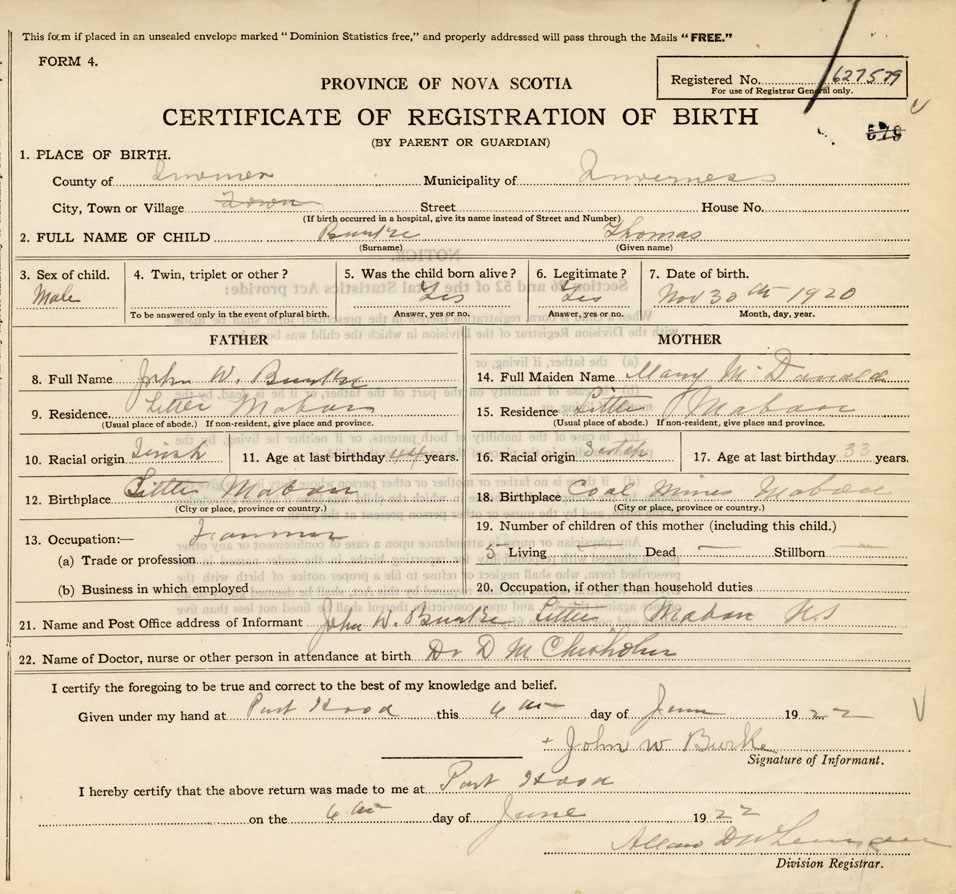 This form if placed in an unsealed envelope marked "Dominion Statistics free," and properly addressed will pass through the Mails "FREE."
FORM 4.
Registered No. 627579
For use of Registrar General only.
PROVINCE OF NOVA SCOTIA
CERTIFICATE OF REGISTRATION OF BIRTH
579
(BY PARENT OR GUARDIAN)
1. PLACE OF BIRTH.
County of Municipality of Inverness
City, Town or Village Town Street House No.
(If birth occurred in a hospital, give its name instead of Street and Number)
2. FULL NAME OF CHILD Burke Thomas
(Surname) (Given name)
3. Sex of child. 4. Twin, triplet or other? 5. Was the child born alive? 6. Legitimate? 7. Date of birth.
Male Yes Yes Nov 30th 1920
To be answered only in the event of plural birth. Answer, yes or no. Answer, yes or no. Month, day, year.
FATHER MOTHER
8. Full Name John W. Burke 14. Full Maiden Name Mary McDonald
9. Residence Little Mabou 15. Residence Little Mabou
(Usual place of abode.) If non-resident, give place and province. (Usual place of abode.) If non-resident, give place and province.
10. Racial origin Irish 11. Age at last birthday 44 years. 16. Racial origin Scotch 17. Age at last birthday 33 years.
12. Birthplace Little Mabou 18. Birthplace Coal Mines Mabou
(City or place, province or country.) (City or place, province or country.)
13. Occupation:— 19. Number of children of this mother (including this child.)
(a) Trade or profession 5 Living — Dead — Stillborn —
(b) Business in which employed 20. Occupation, if other than household duties
21. Name and Post Office address of Informant John W. Burke Little Mabou NS
22. Name of Doctor, nurse or other person in attendance at birth Dr D M Chisholm
I certify the foregoing to be true and correct to the best of my knowledge and belief.
Given under my hand at Port Hood this 6th day of June 1922
+ John W Burke
Signature of Informant.
I hereby certify that the above return was made to me at Port Hood
on the 6th day of June 1922
Allan
Division Registrar.